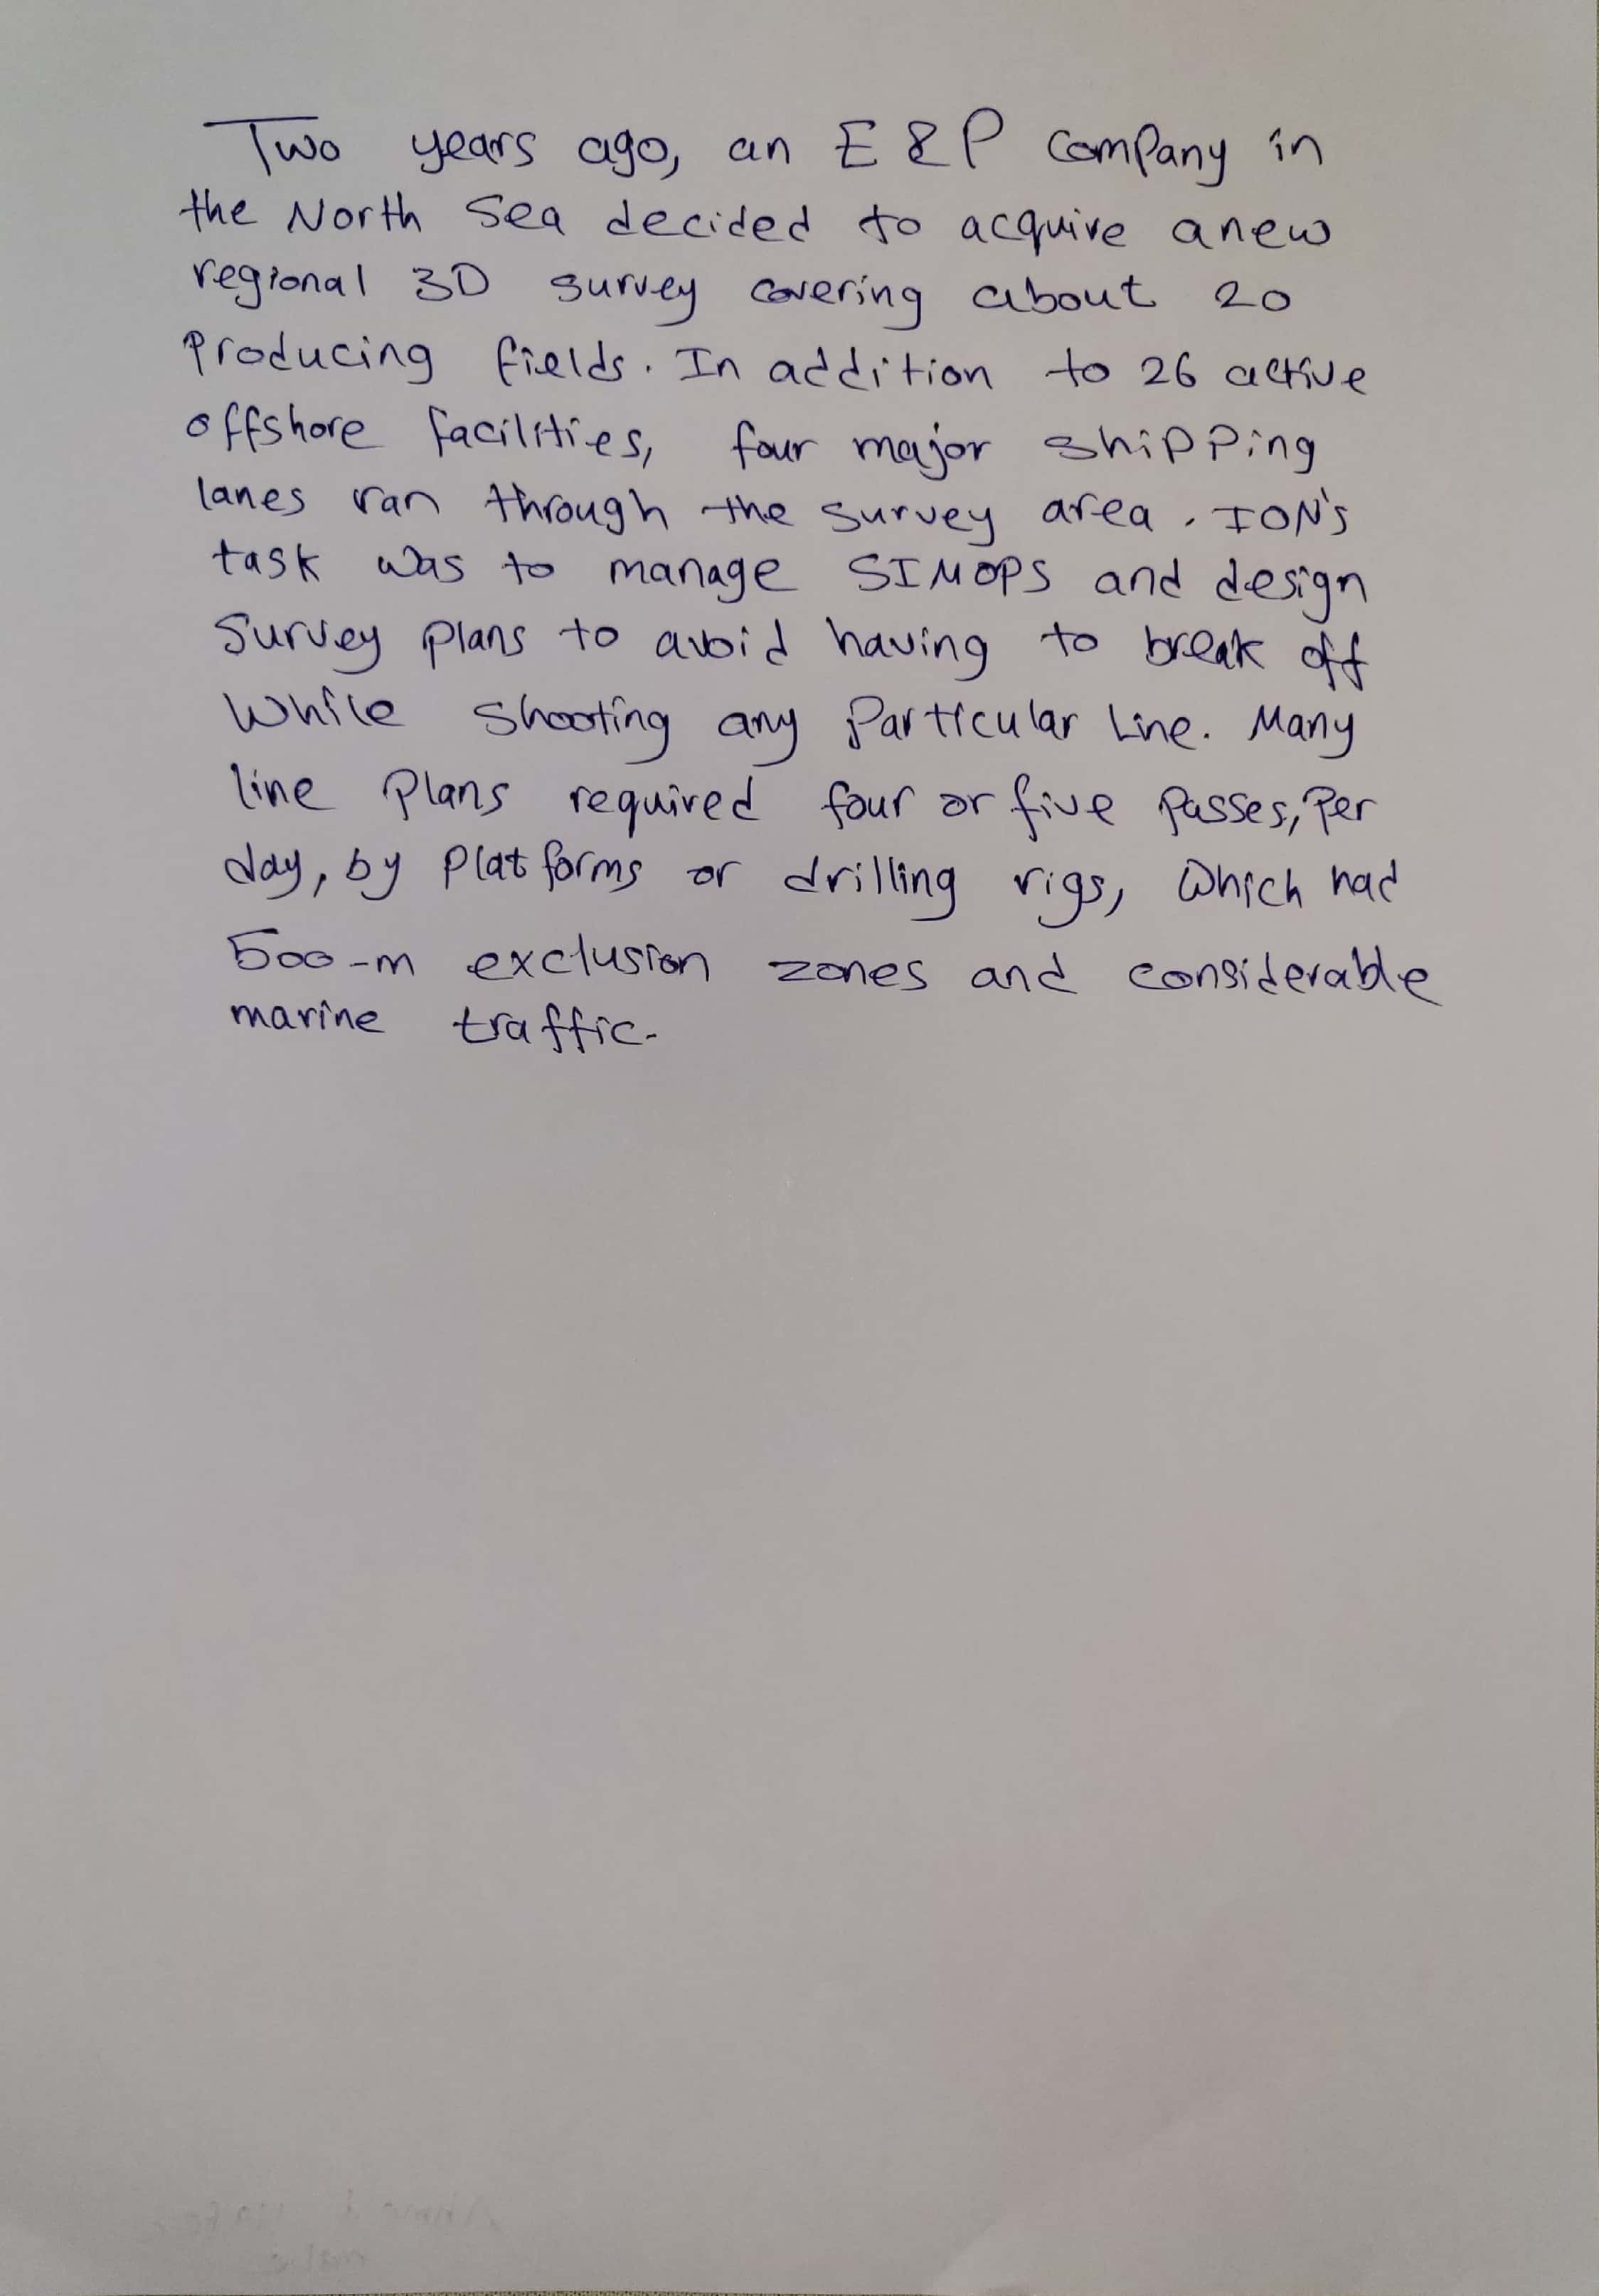 Two years ago, an E & P company in
the North Sea decided to acquire a new
regional 3D survey covering about 20
producing fields. In addition to 26 active
offshore facilities, four major shipping
lanes ran through the survey area. ION's
task was to manage SIMOPS and design
survey plans to avoid having to break off
while shooting any particular line. Many
line plans required four or five passes, per
day, by platforms or drilling rigs, which had
500-m exclusion zones and considerable
marine traffic.